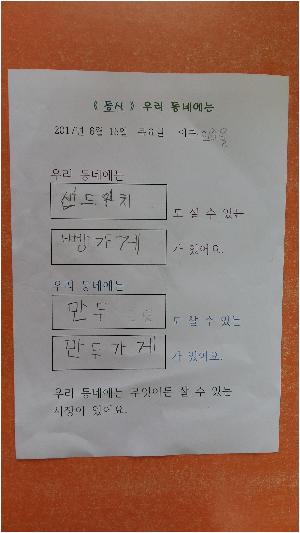 《 동시 》 우리 동네에는
2017년 6월 15일 이름
우리 동네에는
샌드위치
도 살 수 있는
빵가게
가 있어요.
우리 동네에는
만두
도 살 수 있는
만두가게
가 있어요.
우리 동네에는 무엇이든 살 수 있는
시장이 있어요.